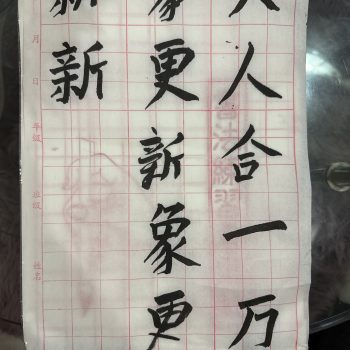 人合一万
象更新象更
新新
書法練習
月 日 年级 班级 姓名